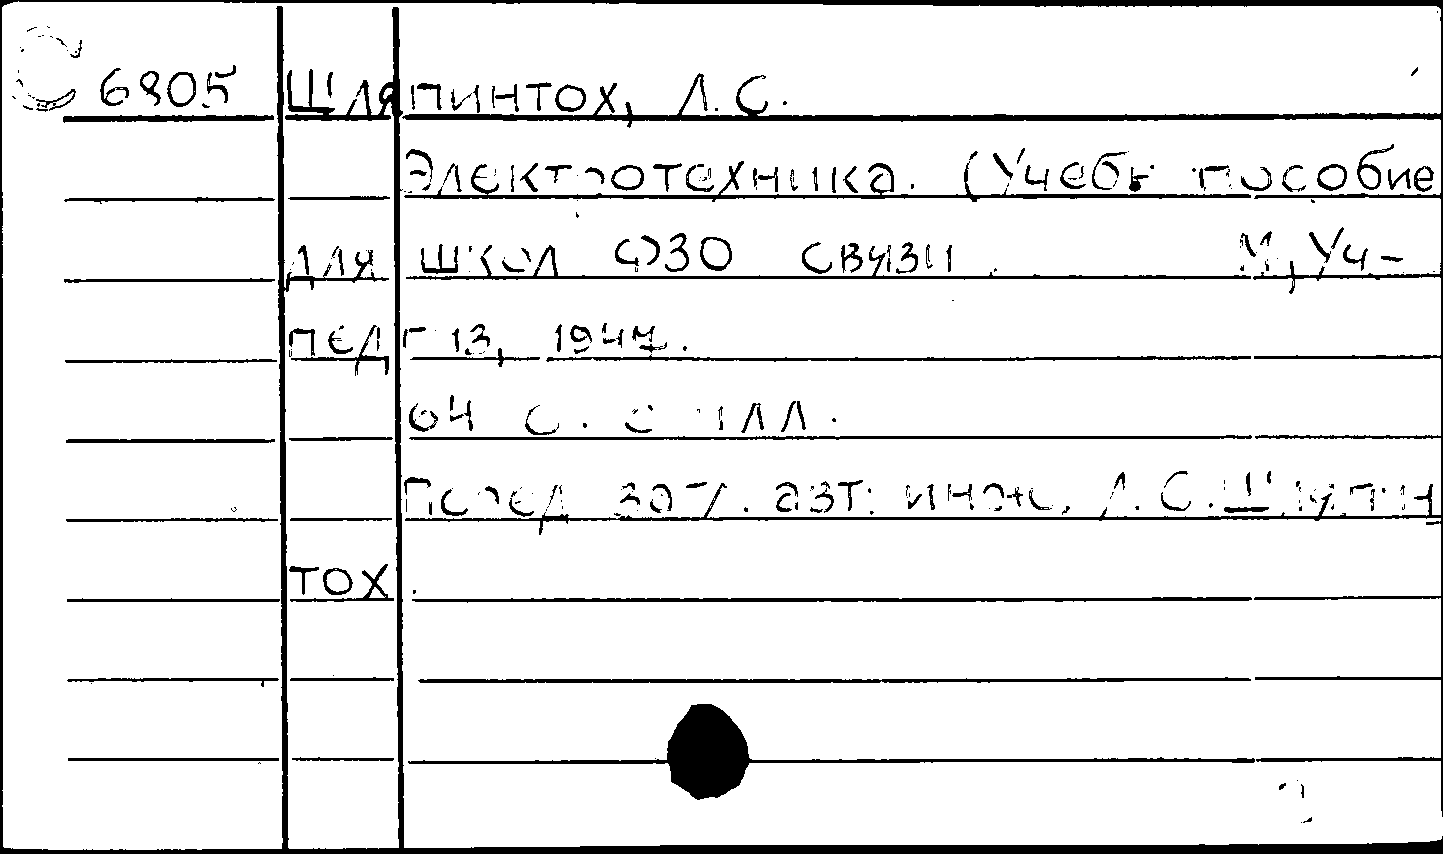 С 6805 Шляпинтох, Л. С.
Электротехника. (Учебн пособие
для школ ФЗО связи. М, Уч-
педгиз, 1947.
64 с. с илл.
Перед загл. авт: инж. Л. С. Шляпин
тох.